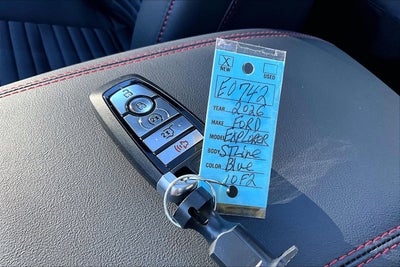 X
NEW USED
E0742
YEAR 2026
MAKE FORD
MODEL EXPLORER
BODY ST line
COLOR Blue
1 OF 2